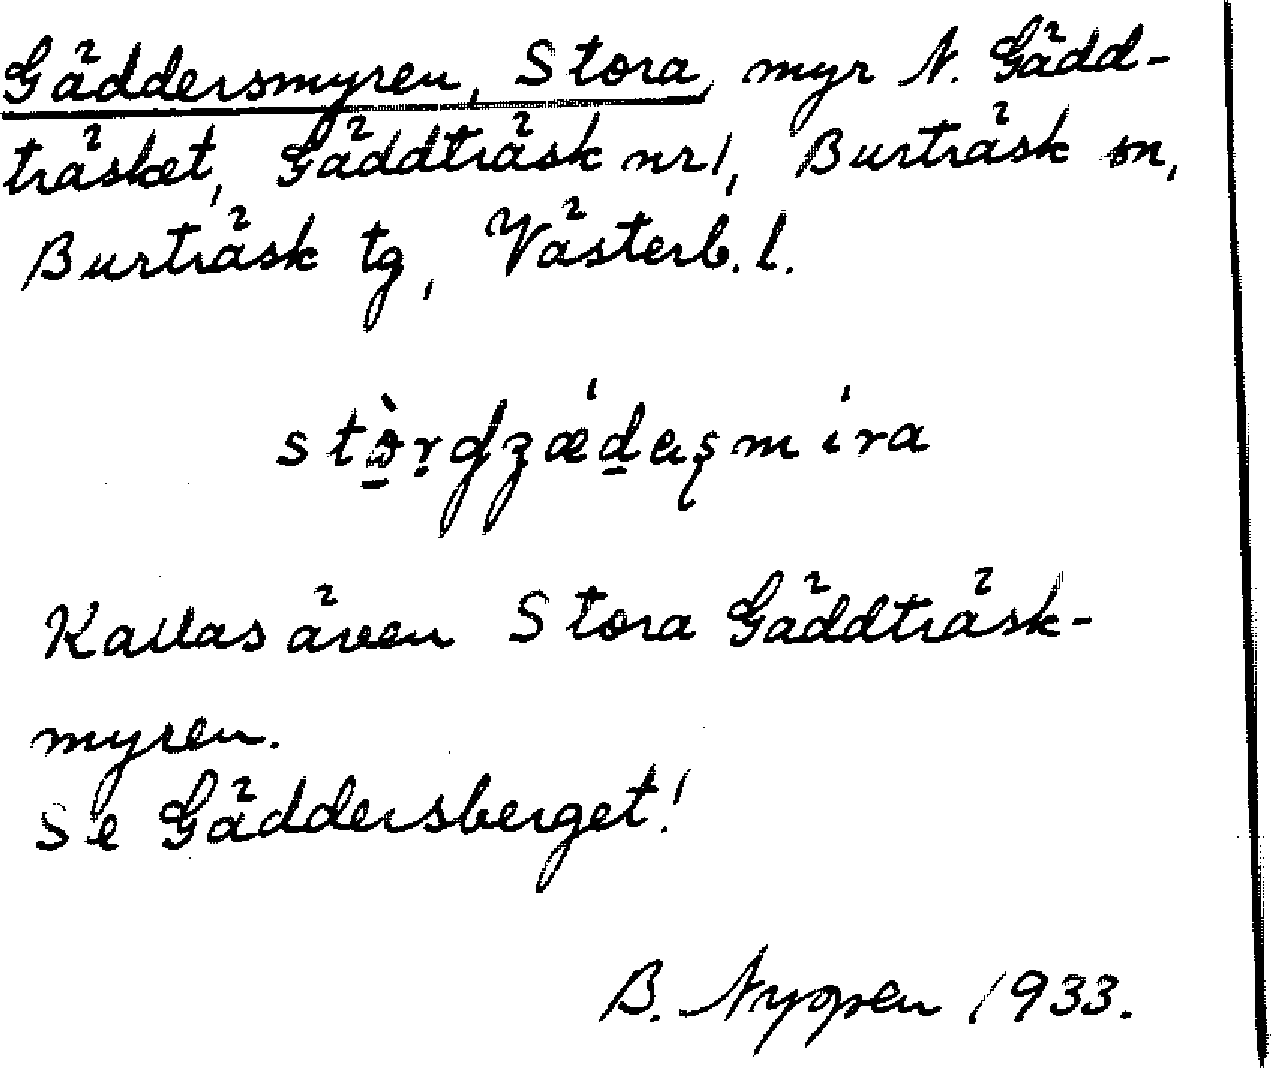 Gäddersmyren, Stora, myr N. Gädd-
träsket, Gäddträsk nr 1, Burträsk sn,
Burträsk tg, Västerb. l.
stò̱ṛɖʒǽḏeʂmíra
Kallas även Stora Gäddträsk-
myren.
Se Gäddersberget!
B. Nygren 1933.